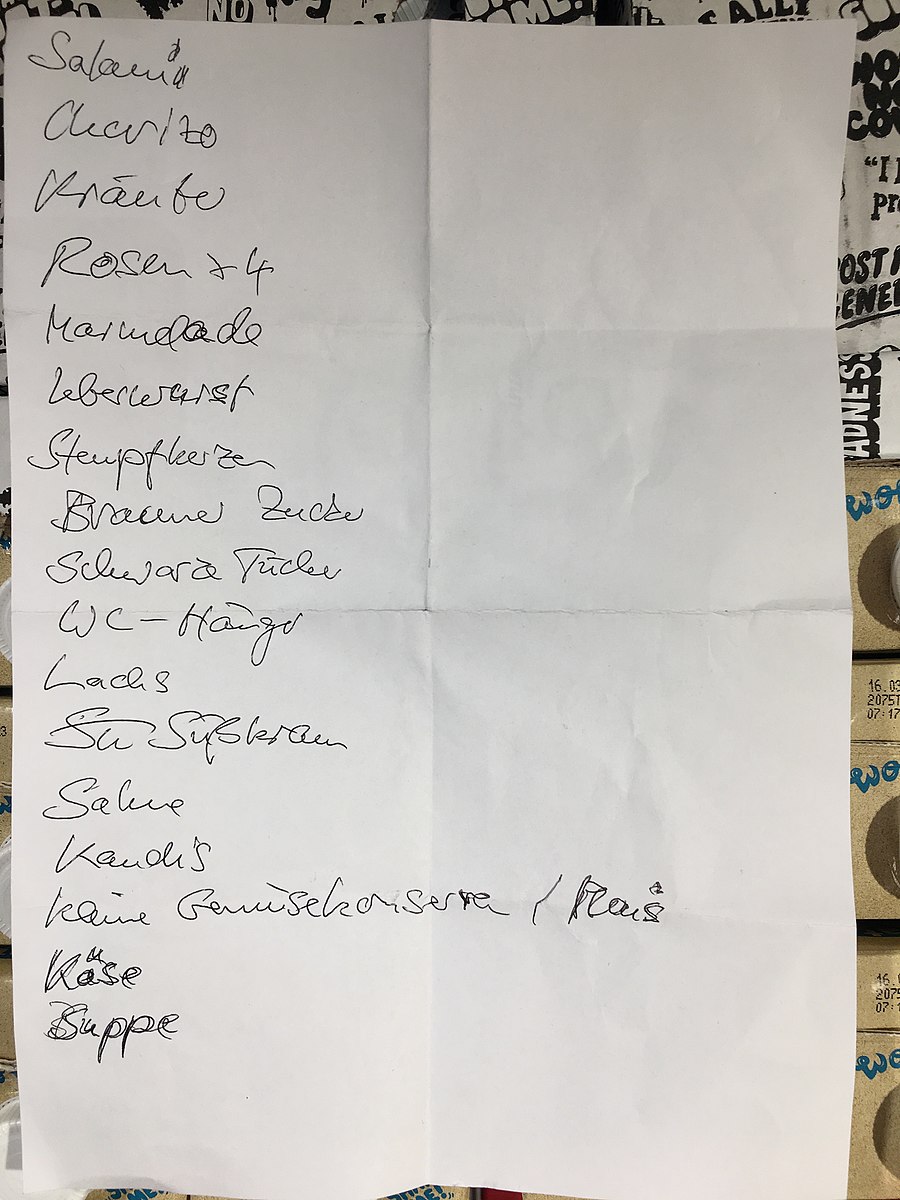 NO
ALLY
Salami
Chorizo
Kräuter
Rosen + 4
Marmelade
Leberwurst
Stumpfkerzen
Brauner Zucker
Schwarze Tücher
WC-Hänger
Lachs
Süßkram
Sahne
Kandis
kleine Gemüsekonserven / Mais
Käse
Suppe
"I
ADNESS
16.03
2075T
07:17
WO
16.
2075
07:1
WO